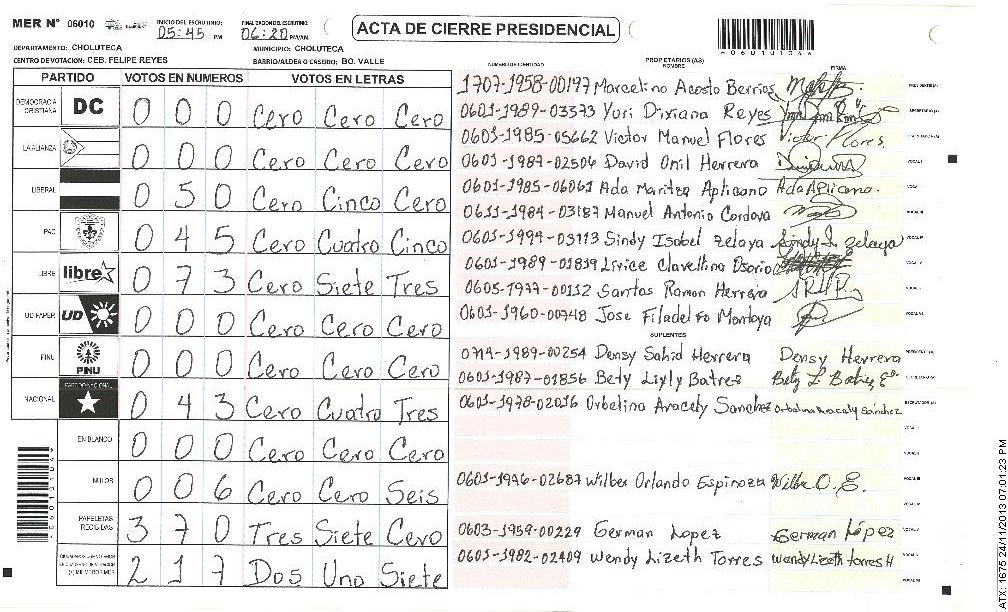 MER Nº 06010
INICIO DEL ESCRUTINIO: 05:45 PM
FINALIZACION DEL ESCRUTINIO: 06:20 PM/AM.
ACTA DE CIERRE PRESIDENCIAL
DEPARTAMENTO: CHOLUTECA MUNICIPIO: CHOLUTECA
CENTRO DE VOTACION: CEB. FELIPE REYES BARRIO/ALDEA O CASERIO: BO. VALLE
PARTIDO VOTOS EN NUMEROS VOTOS EN LETRAS
DEMOCRACIA CRISTIANA DC 0 0 0 Cero Cero Cero
LA ALIANZA 0 0 0 Cero Cero Cero
LIBERAL 0 5 0 Cero Cinco Cero
PAC 0 4 5 Cero Cuatro Cinco
LIBRE libre 0 7 3 Cero Siete Tres
UD FAPER UD 0 0 0 Cero Cero Cero
PINU PINU 0 0 0 Cero Cero Cero
NACIONAL PARTIDO NACIONAL 0 4 3 Cero Cuatro Tres
EN BLANCO 0 0 0 Cero Cero Cero
NULOS 0 0 6 Cero Cero Seis
PAPELETAS RECIBIDAS 3 7 0 Tres Siete Cero
2 1 7 Dos Uno Siete
NUMERO DE IDENTIDAD PROPIETARIOS (AS) NOMBRE FIRMA
1707-1958-00197 Marcelino Acosto Berrios
0601-1989-03573 Yori Dixiana Reyes
0601-1985-05662 Victor Manuel Flores Victor Flores.
0601-1987-02506 David Onil Herrera
0601-1985-06061 Ada Maritza Aplicano Ada Aplicano.
0611-1984-03187 Manuel Antonio Cordova
0601-1994-03113 Sindy Isabel Zelaya Sindy I. Zelaya
0601-1989-01839 Livice Clavellina Osorio
0605-1977-00132 Santos Ramon Herrera
0601-1960-00748 Jose Filadelfo Montoya
SUPLENTES
0714-1989-00254 Densy Sahid Herrera Densy Herrera
0601-1987-01856 Bety Liyly Batrez
0601-1978-02036 Orbelina Aracely Sanchez Orbelina Aracely Sánchez
0601-1996-02687 Wilber Orlando Espinoza Wilber O. E.
0603-1959-00229 German Lopez German López
0601-1982-02409 Wendy Lizeth Torres Wendy Lizeth torres H
ATX: 1675 24/11/2013 07:01:23 PM